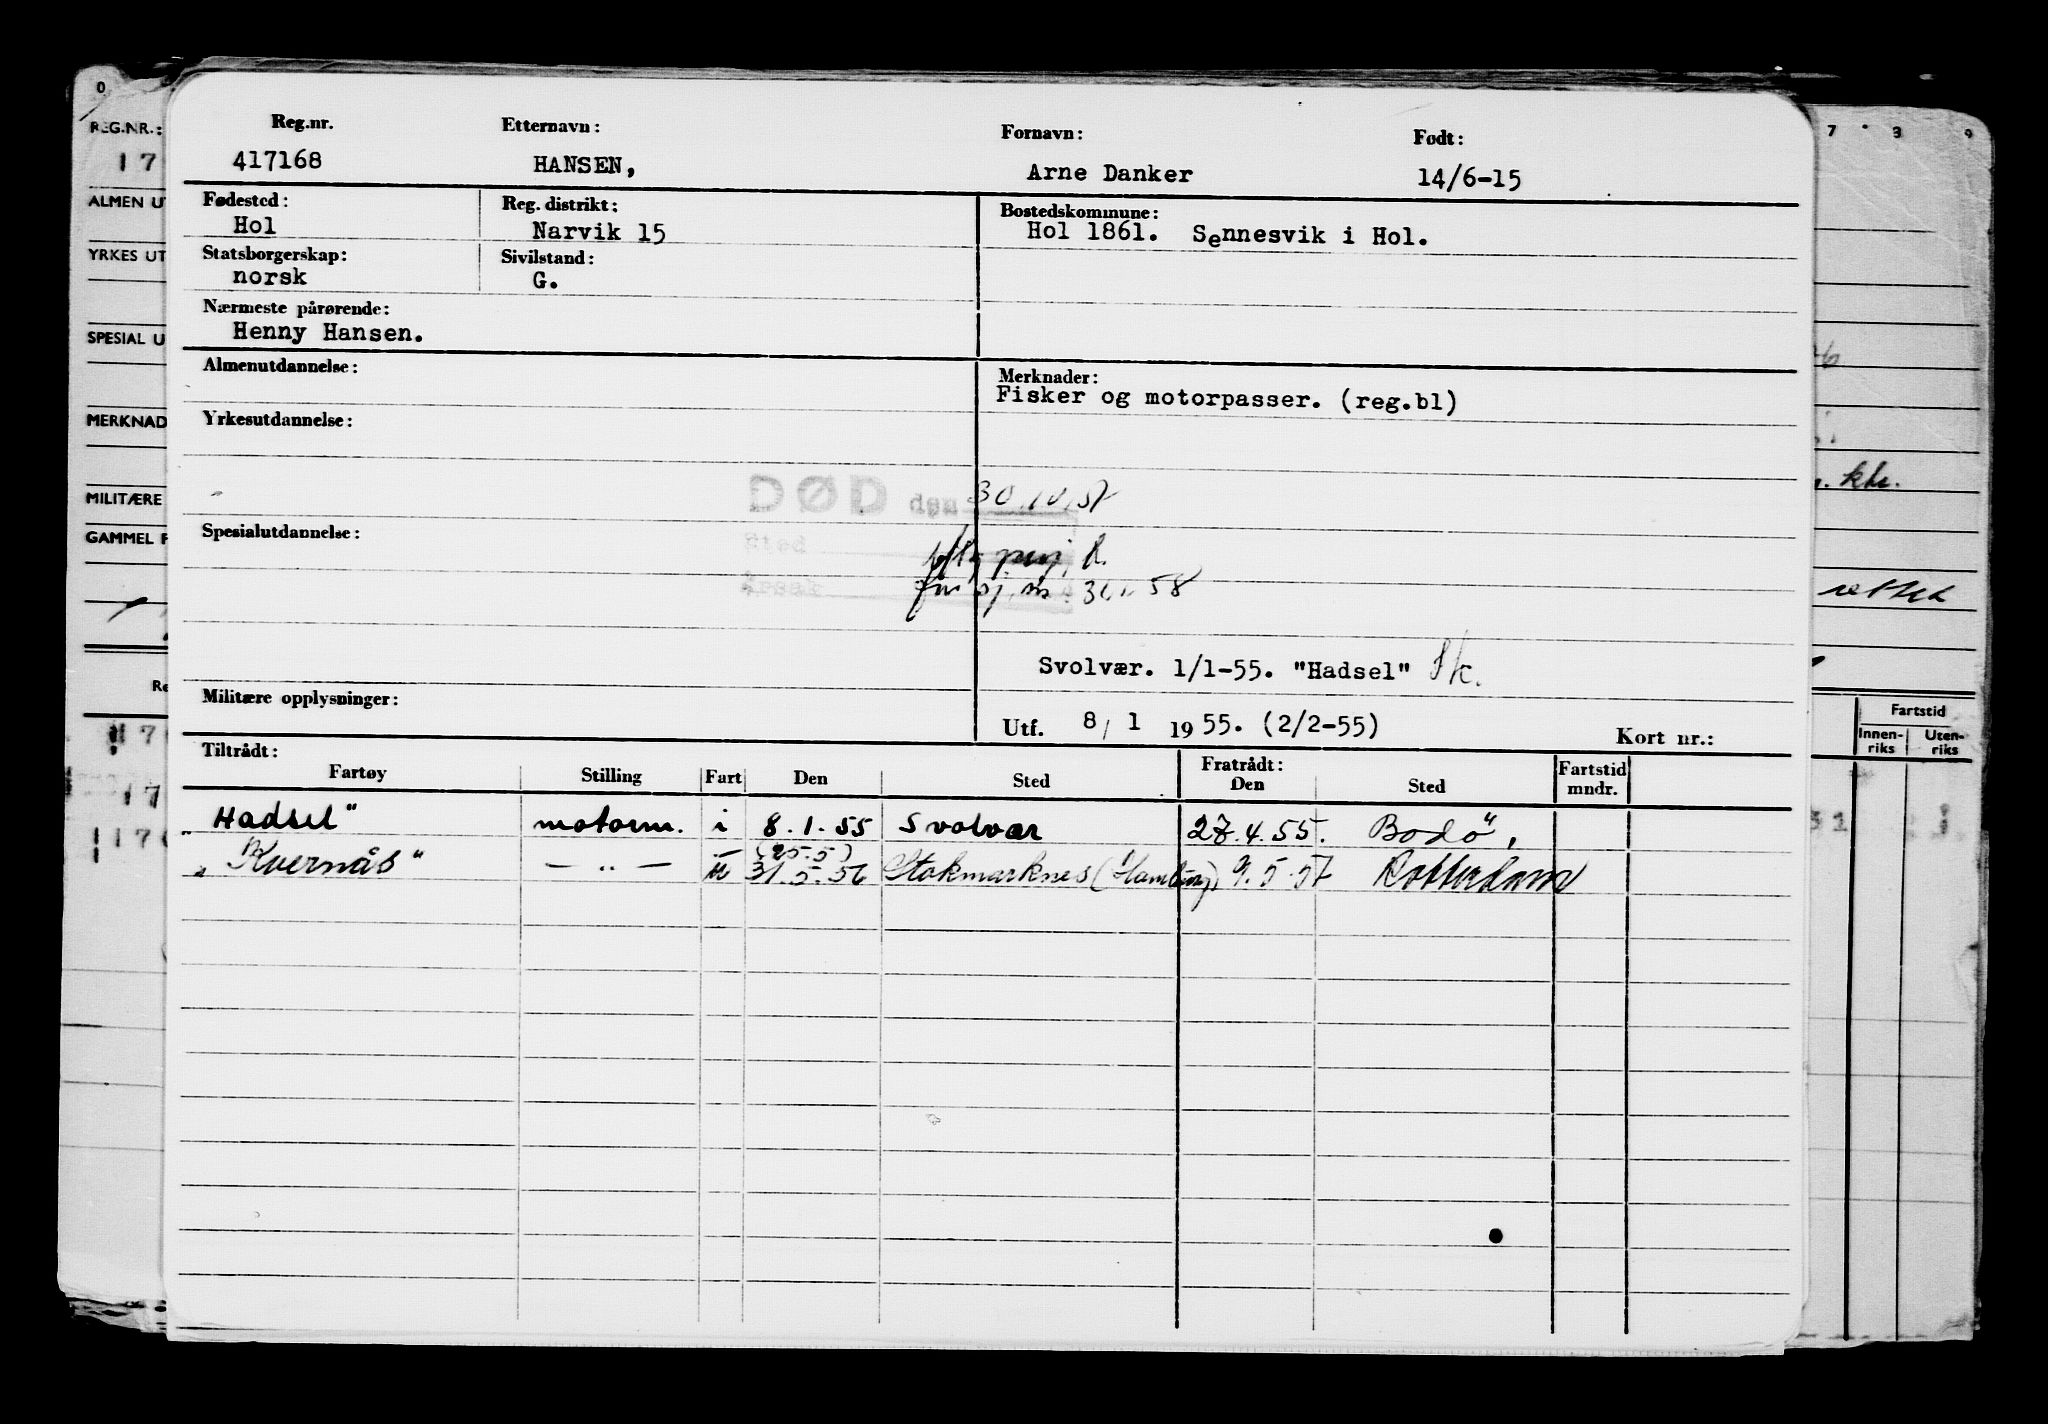 Reg.nr. Etternavn: Fornavn: Født:
417168 HANSEN, Arne Danker 14/6-15
Fødested: Reg. distrikt: Bostedskommune:
Hol Narvik 15 Hol 1861. Sennesvik i Hol.
Statsborgerskap: Sivilstand:
norsk G.
Nærmeste pårørende:
Henny Hansen.
Almenutdannelse: Merknader:
Fisker og motorpasser. (reg.bl)
Yrkesutdannelse:
DØD den 30.10.57
Sted
Spesialutdannelse:
58
Svolvær. 1/1-55. "Hadsel"
Militære opplysninger:
Utf. 8/1 1955. (2/2-55) Kort nr.:
Tiltrådt: Fratrådt: Fartstid
Fartøy Stilling Fart Den Sted Den Sted mndr.
„Hadsel" motorm. i 8.1.55 Svolvær 27.4.55. Bodö,
(25.5)
„Kvernås" — „ — u 31.5.56 Stokmarknes (Hamburg) 9.5.57 Rotterdam
0
REG.NR.:
17
ALMEN UT
YRKES UT
SPESIAL U
MERKNAD
MILITÆRE
GAMMEL F
Re
17
17
7 3 9
khr.
rettet
Fartstid
Innen-riks Uten-riks
31